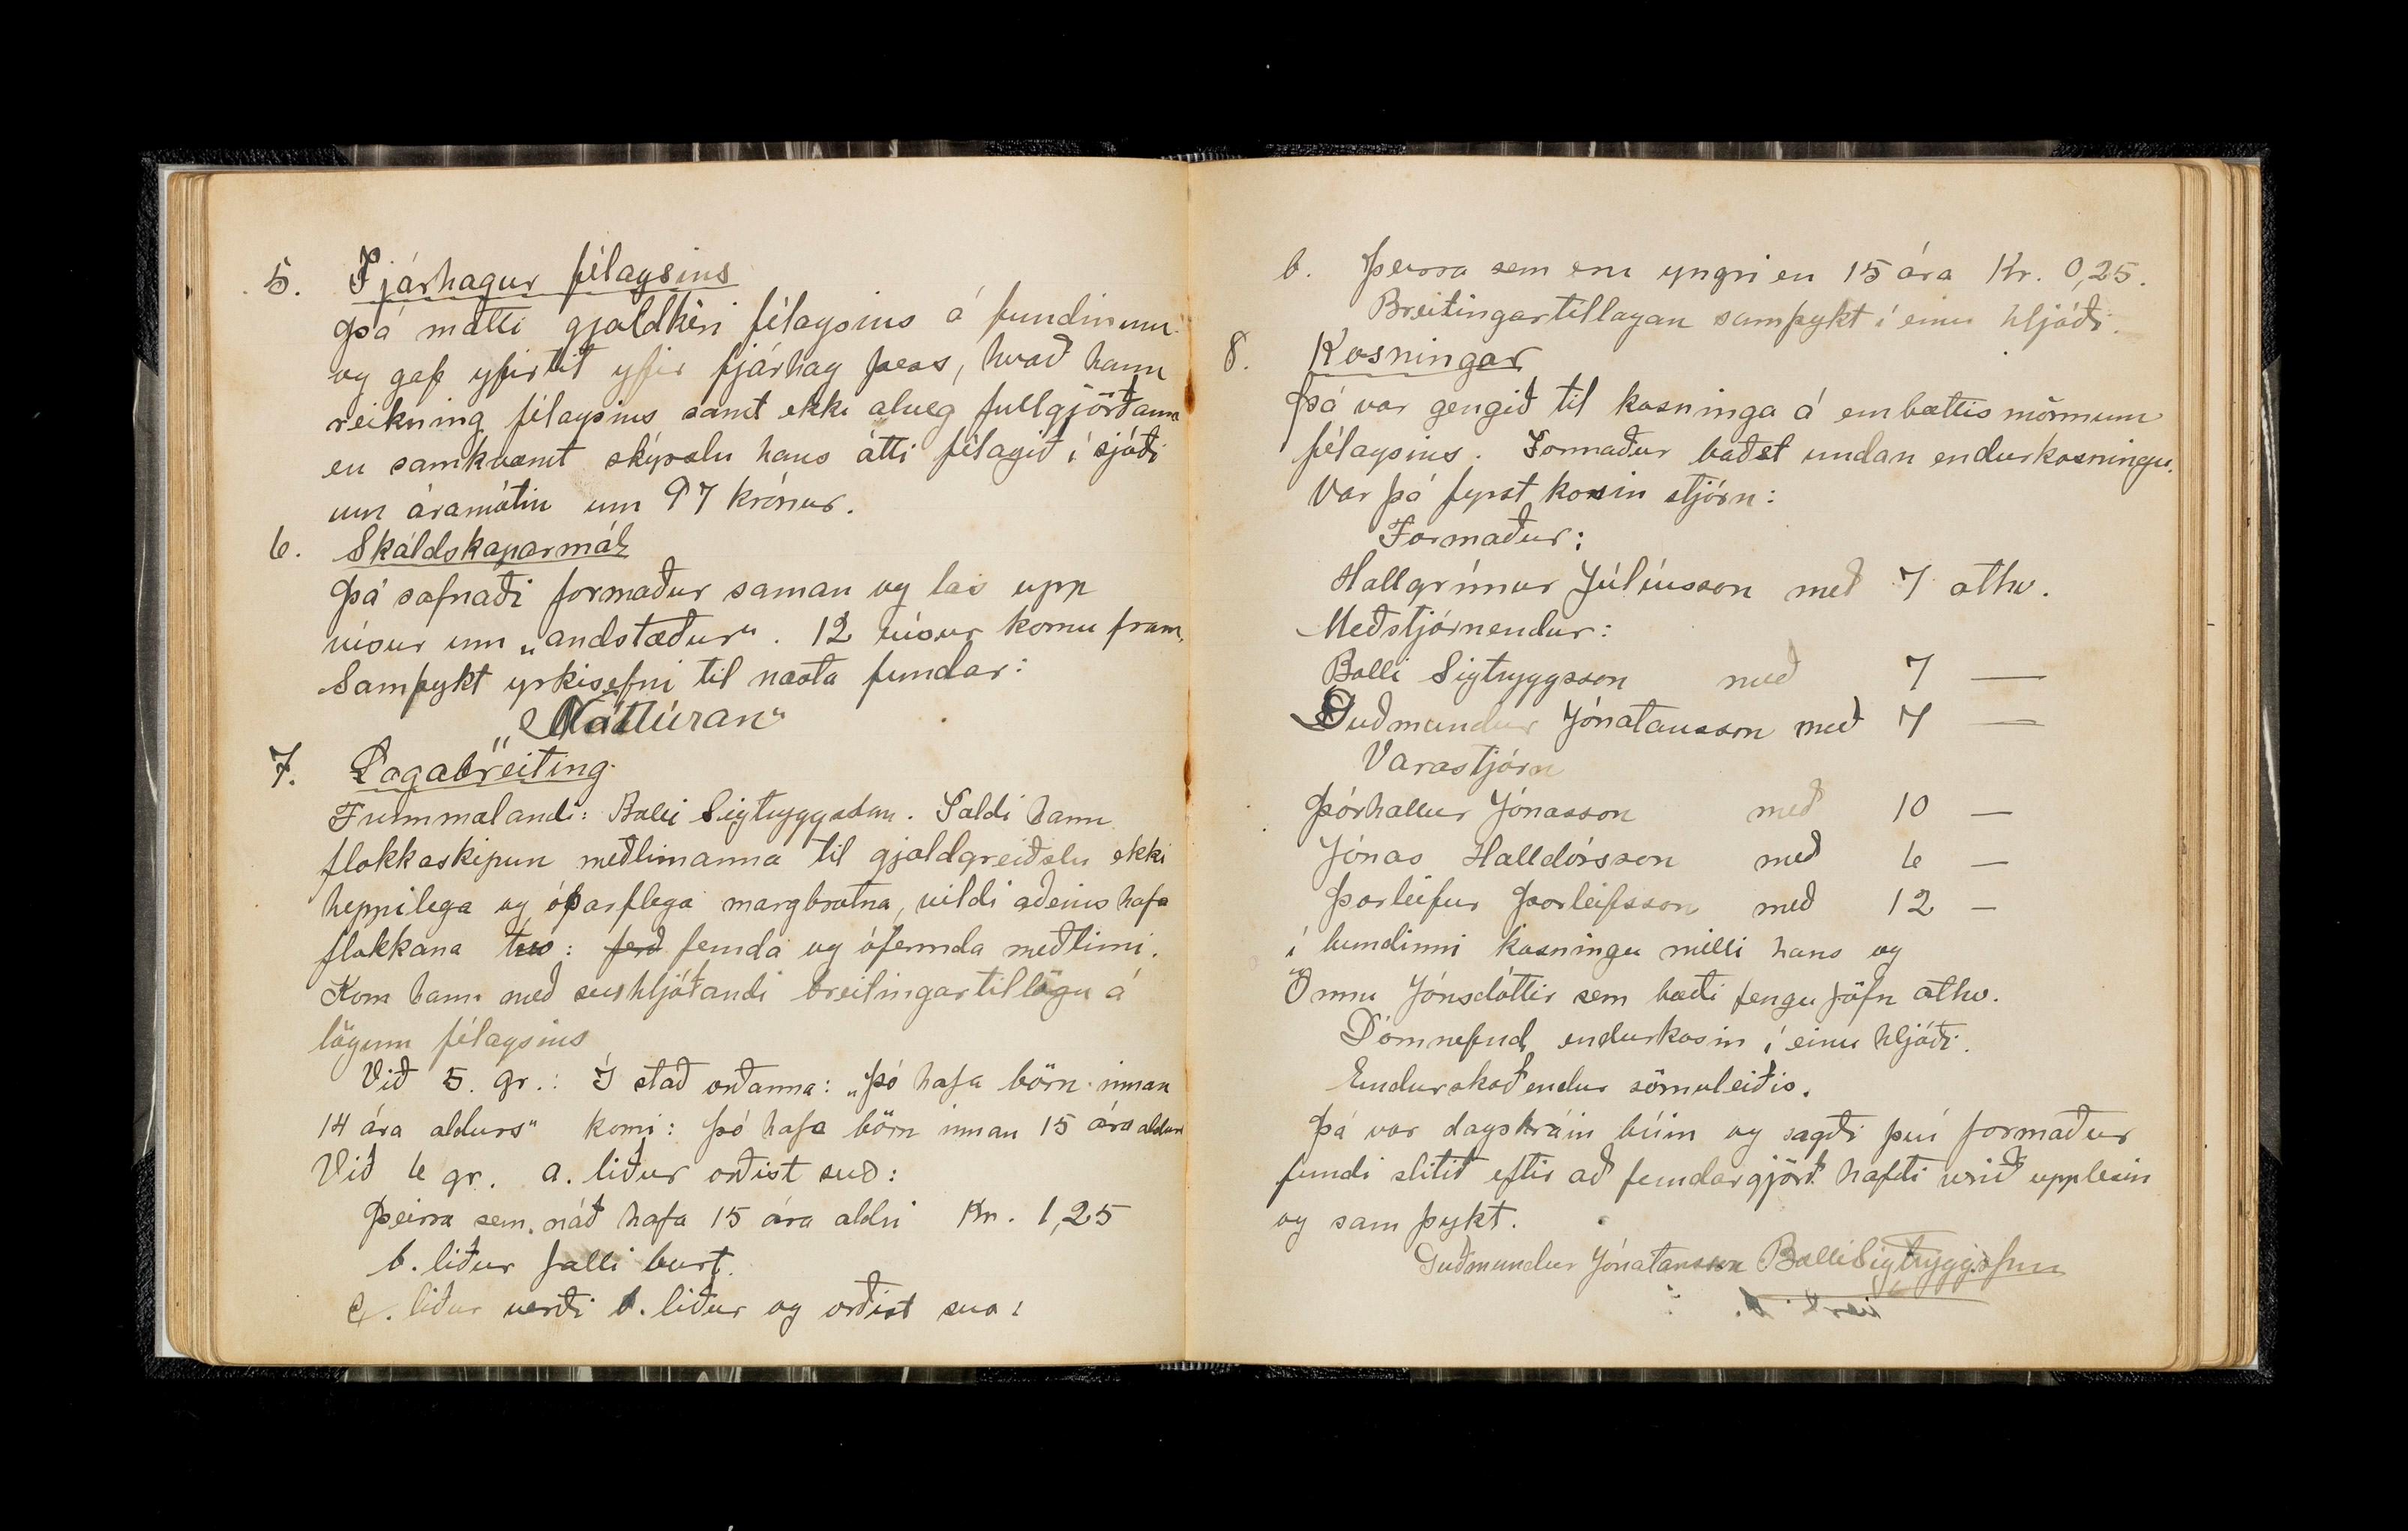 5. Fjárhagur félagsins
Þá mætti gjaldkeri félagsins á fundinum
og gaf yfirlit yfir fjárhag þess, kvað hann
reikning félagsins samt ekki alveg fullgjörðann
en samkvæmt skýrslu hans átti félagið í sjóði
um áramótin um 97 krónur.
6. Skáldskaparmál
Þá safnaði formaður saman og las upp
vísur um „andstæður". 12 vísur komu fram.
Samþykt yrkisefni til næsta fundar:
„Náttúran"
7. Lagabreiting
Frummælandi: Balli Sigtryggsson. Taldi hann
flokkaskipun meðlimanna til gjaldgreiðslu ekki
heppilega og óþarflega margbrotna, vildi aðeins hafa
flokkana tvo: ferð femda og ófermda meðlimi.
Kom hann með svohljóðandi breitingartillögu á
lögum félagsins
Við 5. gr.: Í stað orðanna: „þó hafa börn innan
14 ára aldurs" komi: þó hafa börn innan 15 ára aldurs
Við 6 gr. a. liður orðist svo:
Þeirra sem náð hafa 15 ára aldri Kr. 1,25
b. liður falli burt.
c. liður verði b. liður og orðist svo:
b. Þeirra sem eru yngri en 15 ára Kr. 0,25.
Breitingartillagan samþykt í einu hljóði.
8. Kosningar
Þá var gengið til kosninga á embættismönnum
félagsins. Formaður baðst undan endurkosningu.
Var þá fyrst kosin stjórn:
Formaður:
Hallgrímur Júlíusson með 7 atkv.
Meðstjórnendur:
Balli Sigtryggsson með 7 —
Guðmundur Jónatansson með 7 —
Varastjórn
Þórhallur Jónasson með 10 —
Jónas Halldórsson með 6 —
Þorleifur Þorleifsson með 12 —
í bundinni kosningu milli hans og
Önnu Jónsdóttir sem bæði fengu jöfn atkv.
Dómnefnd endurkosin í einu hljóði.
Endurskoðendur sömuleiðis.
Þá var dagskráin búin og sagði því formaður
fundi slitið eftir að fundargjörð hafði verið upplesin
og samþykt.
Guðmundur Jónatansson Balli Sigtryggsson